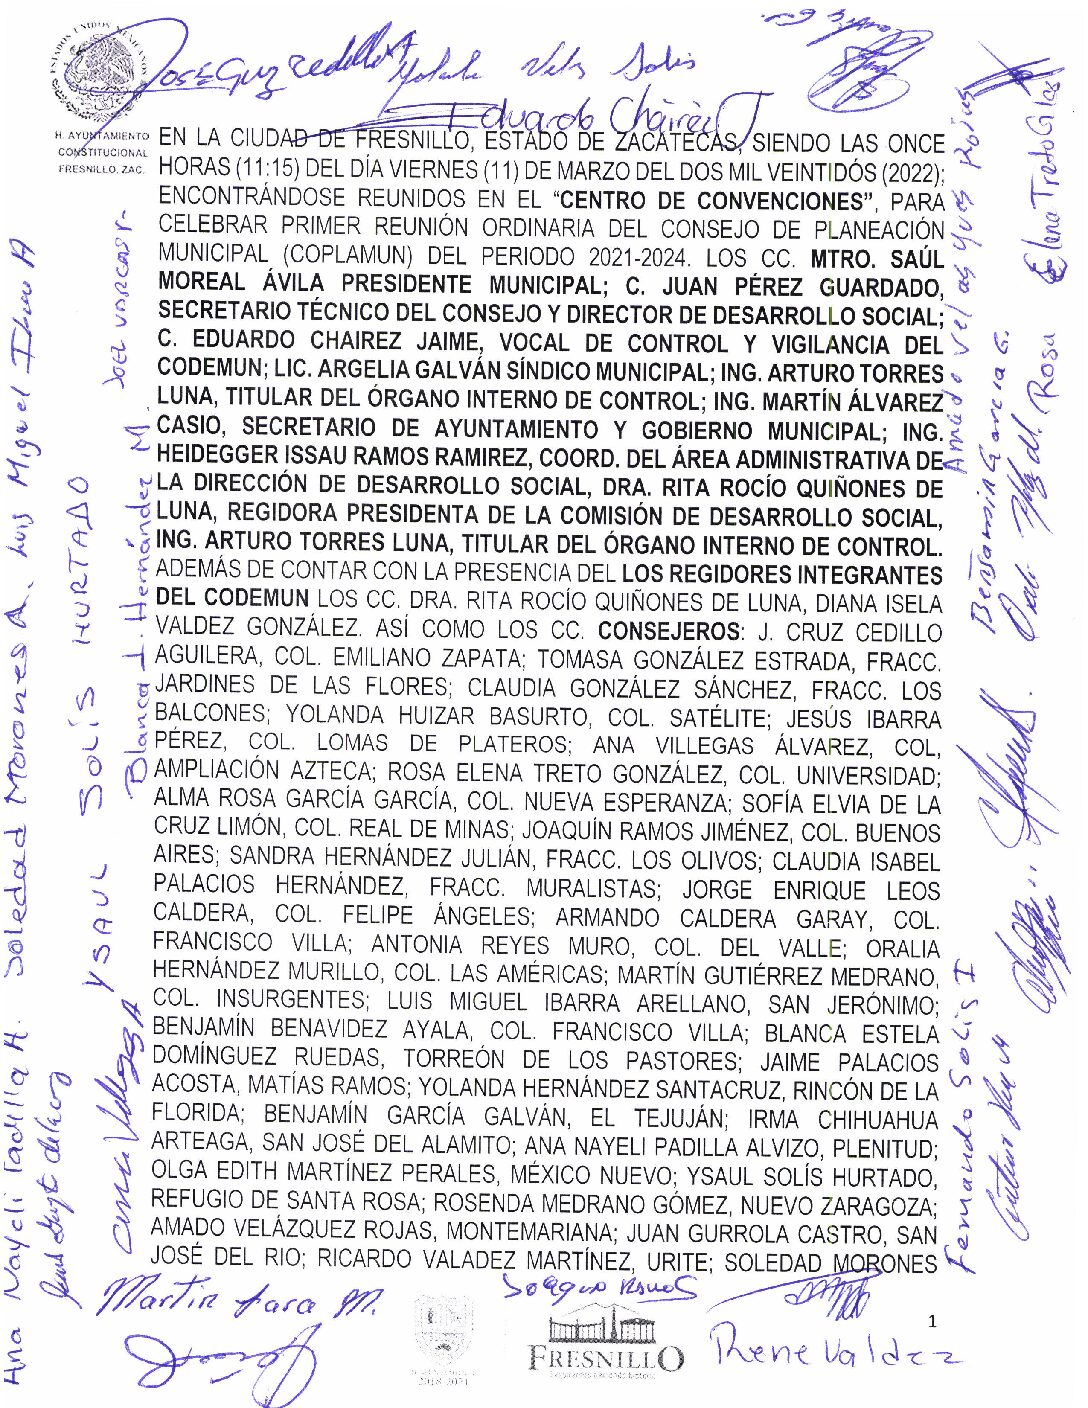 ESTADOS UNIDOS MEXICANOS
H. AYUNTAMIENTO
CONSTITUCIONAL
FRESNILLO, ZAC.
Yolanda
Solis
Eduardo Cháirez J
EN LA CIUDAD DE FRESNILLO, ESTADO DE ZACATECAS, SIENDO LAS ONCE
HORAS (11:15) DEL DÍA VIERNES (11) DE MARZO DEL DOS MIL VEINTIDÓS (2022);
ENCONTRÁNDOSE REUNIDOS EN EL “CENTRO DE CONVENCIONES”, PARA
CELEBRAR PRIMER REUNIÓN ORDINARIA DEL CONSEJO DE PLANEACIÓN
MUNICIPAL (COPLAMUN) DEL PERIODO 2021-2024. LOS CC. MTRO. SAÚL
MOREAL ÁVILA PRESIDENTE MUNICIPAL; C. JUAN PÉREZ GUARDADO,
SECRETARIO TÉCNICO DEL CONSEJO Y DIRECTOR DE DESARROLLO SOCIAL;
C. EDUARDO CHAIREZ JAIME, VOCAL DE CONTROL Y VIGILANCIA DEL
CODEMUN; LIC. ARGELIA GALVÁN SÍNDICO MUNICIPAL; ING. ARTURO TORRES
LUNA, TITULAR DEL ÓRGANO INTERNO DE CONTROL; ING. MARTÍN ÁLVAREZ
CASIO, SECRETARIO DE AYUNTAMIENTO Y GOBIERNO MUNICIPAL; ING.
HEIDEGGER ISSAU RAMOS RAMIREZ, COORD. DEL ÁREA ADMINISTRATIVA DE
LA DIRECCIÓN DE DESARROLLO SOCIAL, DRA. RITA ROCÍO QUIÑONES DE
LUNA, REGIDORA PRESIDENTA DE LA COMISIÓN DE DESARROLLO SOCIAL,
ING. ARTURO TORRES LUNA, TITULAR DEL ÓRGANO INTERNO DE CONTROL.
ADEMÁS DE CONTAR CON LA PRESENCIA DEL LOS REGIDORES INTEGRANTES
DEL CODEMUN LOS CC. DRA. RITA ROCÍO QUIÑONES DE LUNA, DIANA ISELA
VALDEZ GONZÁLEZ. ASÍ COMO LOS CC. CONSEJEROS: J. CRUZ CEDILLO
AGUILERA, COL. EMILIANO ZAPATA; TOMASA GONZÁLEZ ESTRADA, FRACC.
JARDINES DE LAS FLORES; CLAUDIA GONZÁLEZ SÁNCHEZ, FRACC. LOS
BALCONES; YOLANDA HUIZAR BASURTO, COL. SATÉLITE; JESÚS IBARRA
PÉREZ, COL. LOMAS DE PLATEROS; ANA VILLEGAS ÁLVAREZ, COL,
AMPLIACIÓN AZTECA; ROSA ELENA TRETO GONZÁLEZ, COL. UNIVERSIDAD;
ALMA ROSA GARCÍA GARCÍA, COL. NUEVA ESPERANZA; SOFÍA ELVIA DE LA
CRUZ LIMÓN, COL. REAL DE MINAS; JOAQUÍN RAMOS JIMÉNEZ, COL. BUENOS
AIRES; SANDRA HERNÁNDEZ JULIÁN, FRACC. LOS OLIVOS; CLAUDIA ISABEL
PALACIOS HERNÁNDEZ, FRACC. MURALISTAS; JORGE ENRIQUE LEOS
CALDERA, COL. FELIPE ÁNGELES; ARMANDO CALDERA GARAY, COL.
FRANCISCO VILLA; ANTONIA REYES MURO, COL. DEL VALLE; ORALIA
HERNÁNDEZ MURILLO, COL. LAS AMÉRICAS; MARTÍN GUTIÉRREZ MEDRANO,
COL. INSURGENTES; LUIS MIGUEL IBARRA ARELLANO, SAN JERÓNIMO;
BENJAMÍN BENAVIDEZ AYALA, COL. FRANCISCO VILLA; BLANCA ESTELA
DOMÍNGUEZ RUEDAS, TORREÓN DE LOS PASTORES; JAIME PALACIOS
ACOSTA, MATÍAS RAMOS; YOLANDA HERNÁNDEZ SANTACRUZ, RINCÓN DE LA
FLORIDA; BENJAMÍN GARCÍA GALVÁN, EL TEJUJÁN; IRMA CHIHUAHUA
ARTEAGA, SAN JOSÉ DEL ALAMITO; ANA NAYELI PADILLA ALVIZO, PLENITUD;
OLGA EDITH MARTÍNEZ PERALES, MÉXICO NUEVO; YSAUL SOLÍS HURTADO,
REFUGIO DE SANTA ROSA; ROSENDA MEDRANO GÓMEZ, NUEVO ZARAGOZA;
AMADO VELÁZQUEZ ROJAS, MONTEMARIANA; JUAN GURROLA CASTRO, SAN
JOSÉ DEL RIO; RICARDO VALADEZ MARTÍNEZ, URITE; SOLEDAD MORONES
Ana Nayeli Padilla A.
Soledad Morones A.
Luis Miguel
YSAUL SOLÍS HURTADO
Ana Villegas A
Blanca I. Hernández M
Elena Treto Glas
Benjamin Garcia G.
Fernando Solis I
Martin Jara M.
Joaquin Ramos
Rene Valdez
FRESNILLO
2018-2021
1